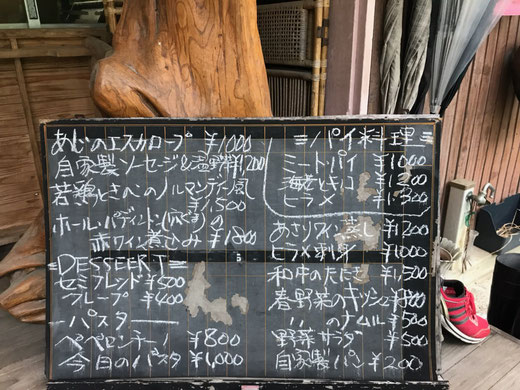 あじのエスカロープ ¥1000
自家製ソーセージ&温野菜 1,200
若鶏ときのこのノルマンディー風
¥1,500
ホール・パディントン
赤ワイン煮込み ¥1800
=DESSEERT=
セミフレッド ¥500
クレープ ¥400
パスタ
ペペロンチーノ ¥800
今日のパスタ ¥1,000
=パイ料理=
ミートパイ ¥1000
海老ときのこ
ヒラメ
あさりワイン蒸し ¥1200
ヒラメ刺身 ¥1000
和牛のたたき ¥1,500
春野菜のキッシュ
〃 のナムル ¥500
野菜サラダ ¥500
自家製パン ¥200